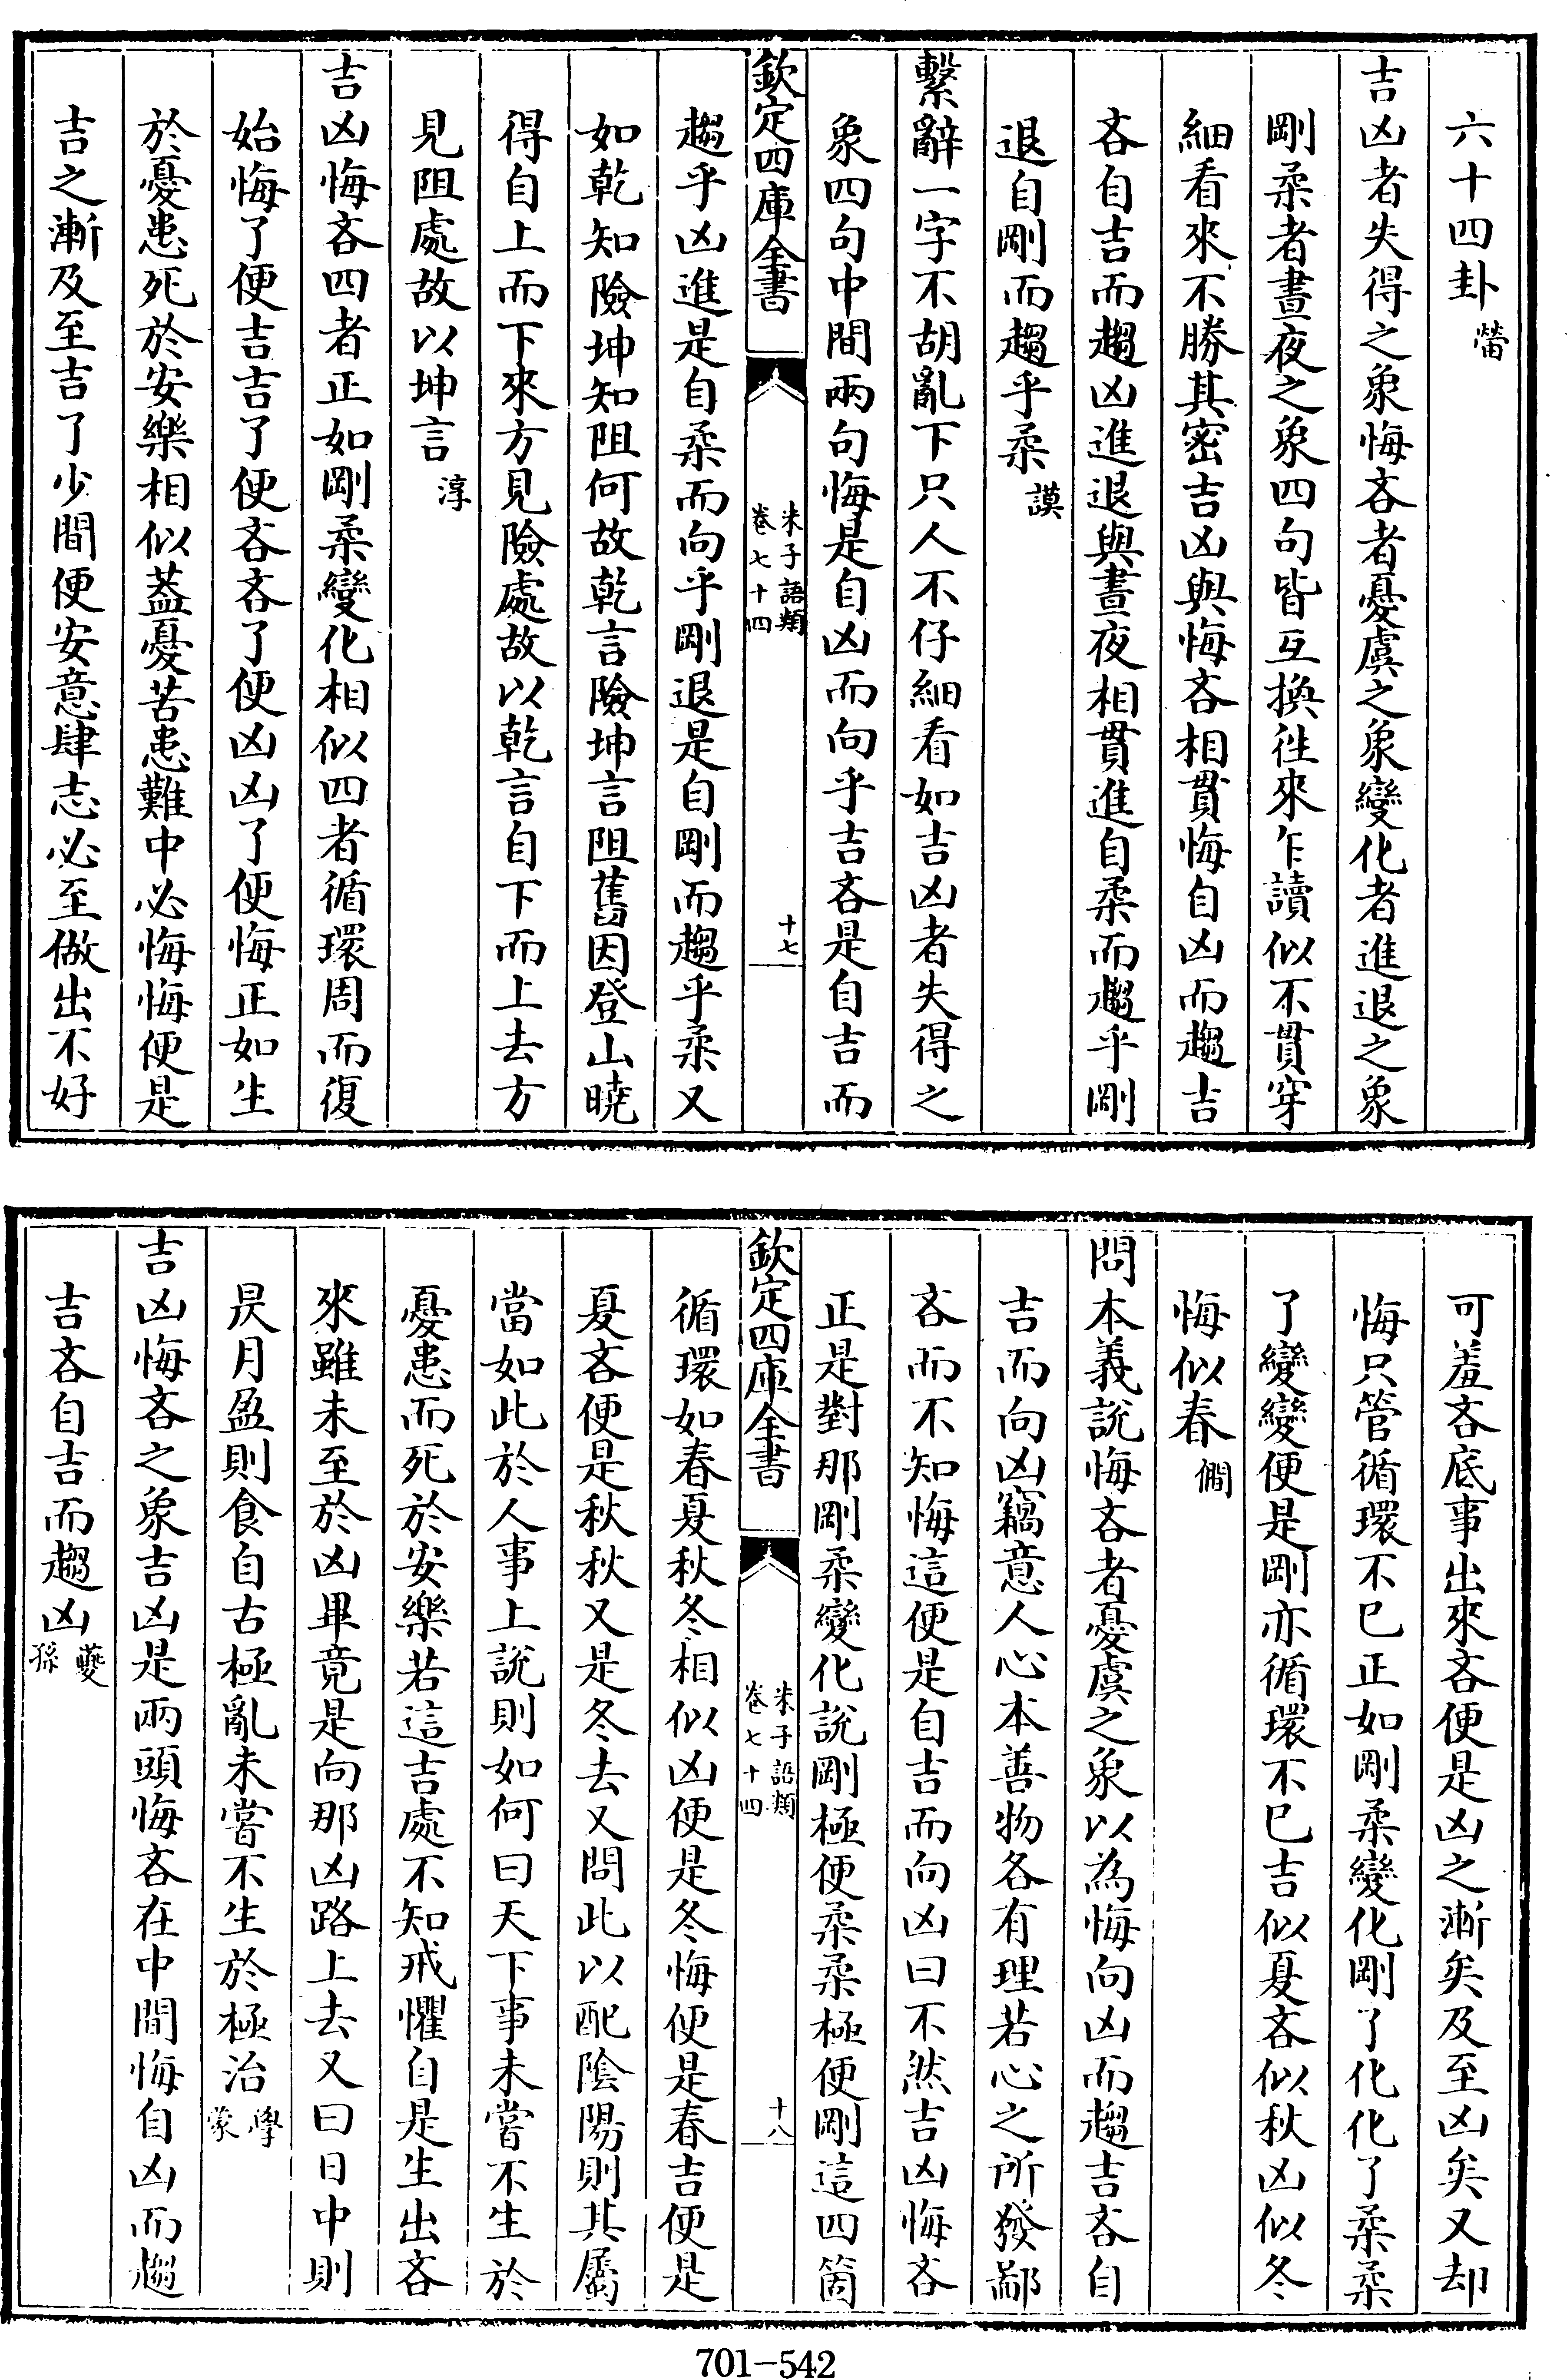 六十四卦 㽦
吉凶者失得之象悔吝者憂虞之象變化者進退之象
剛柔者晝夜之象四句皆互換徃來乍讀似不貫穿
細看來不勝其密吉凶與悔吝相貫悔自凶而趨吉
吝自吉而趨凶進退與晝夜相貫進自柔而趨乎剛
退自剛而趨乎柔 謨
繫辭一字不胡亂下只人不仔細看如吉凶者失得之
象四句中間兩句悔是自凶而向乎吉吝是自吉而
欽定四庫全書
朱子語類
卷七十四
十七
趨乎凶進是自柔而向乎剛退是自剛而趨乎柔又
如乾知險坤知阻何故乾言險坤言阻舊因登山曉
得自上而下來方見險處故以乾言自下而上去方
見阻處故以坤言 淳
吉凶悔吝四者正如剛柔變化相似四者循環周而復
始悔了便吉吉了便吝吝了便凶凶了便悔正如生
於憂患死於安樂相似蓋憂苦患難中必悔悔便是
吉之漸及至吉了少間便安意肆志必至做出不好
可羞吝底事出來吝便是凶之漸矣及至凶矣又却
悔只管循環不已正如剛柔變化剛了化化了柔柔
了變變便是剛亦循環不已吉似夏吝似秋凶似冬
悔似春 僩
問本義說悔吝者憂虞之象以為悔向凶而趨吉吝自
吉而向凶竊意人心本善物各有理若心之所發鄙
吝而不知悔這便是自吉而向凶曰不然吉凶悔吝
正是對那剛柔變化說剛極便柔柔極便剛這四箇
欽定四庫全書
朱子語類
卷七十四
十八
循環如春夏秋冬相似凶便是冬悔便是春吉便是
夏吝便是秋秋又是冬去又問此以配陰陽則其屬
當如此於人事上說則如何曰天下事未嘗不生於
憂患而死於安樂若這吉處不知戒懼自是生出吝
來雖未至於凶畢竟是向那凶路上去又曰日中則
昃月盈則食自古極亂未嘗不生於極治 學蒙
吉凶悔吝之象吉凶是兩頭悔吝在中間悔自凶而趨
吉吝自吉而趨凶 夔孫
701-542